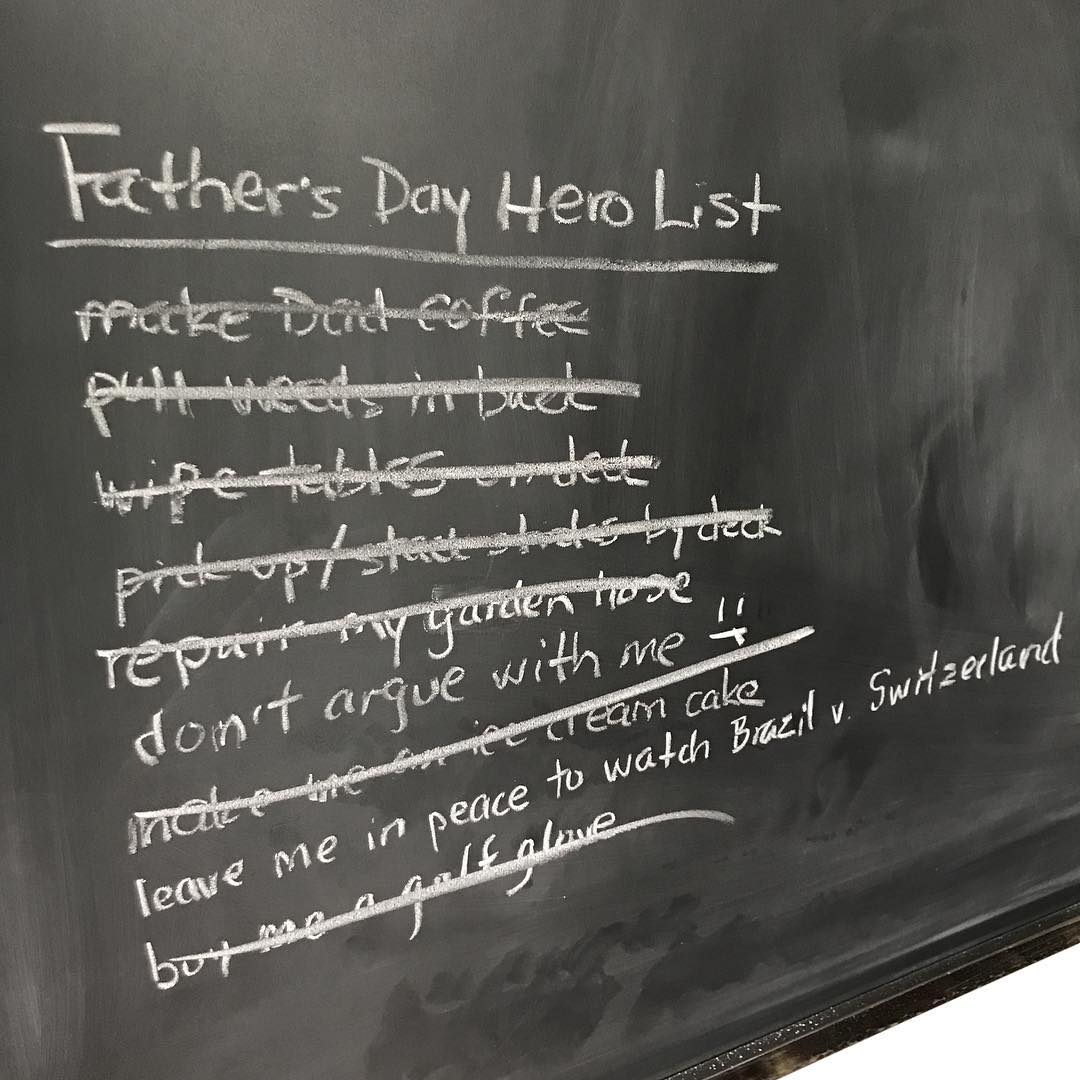 Father's Day Hero List
make Dad coffee
pull weeds in back
wipe tables on deck
pick up / stack sticks by deck
repair my garden hose
don't argue with me
make me an ice cream cake
leave me in peace to watch Brazil v. Switzerland
buy me a golf glove